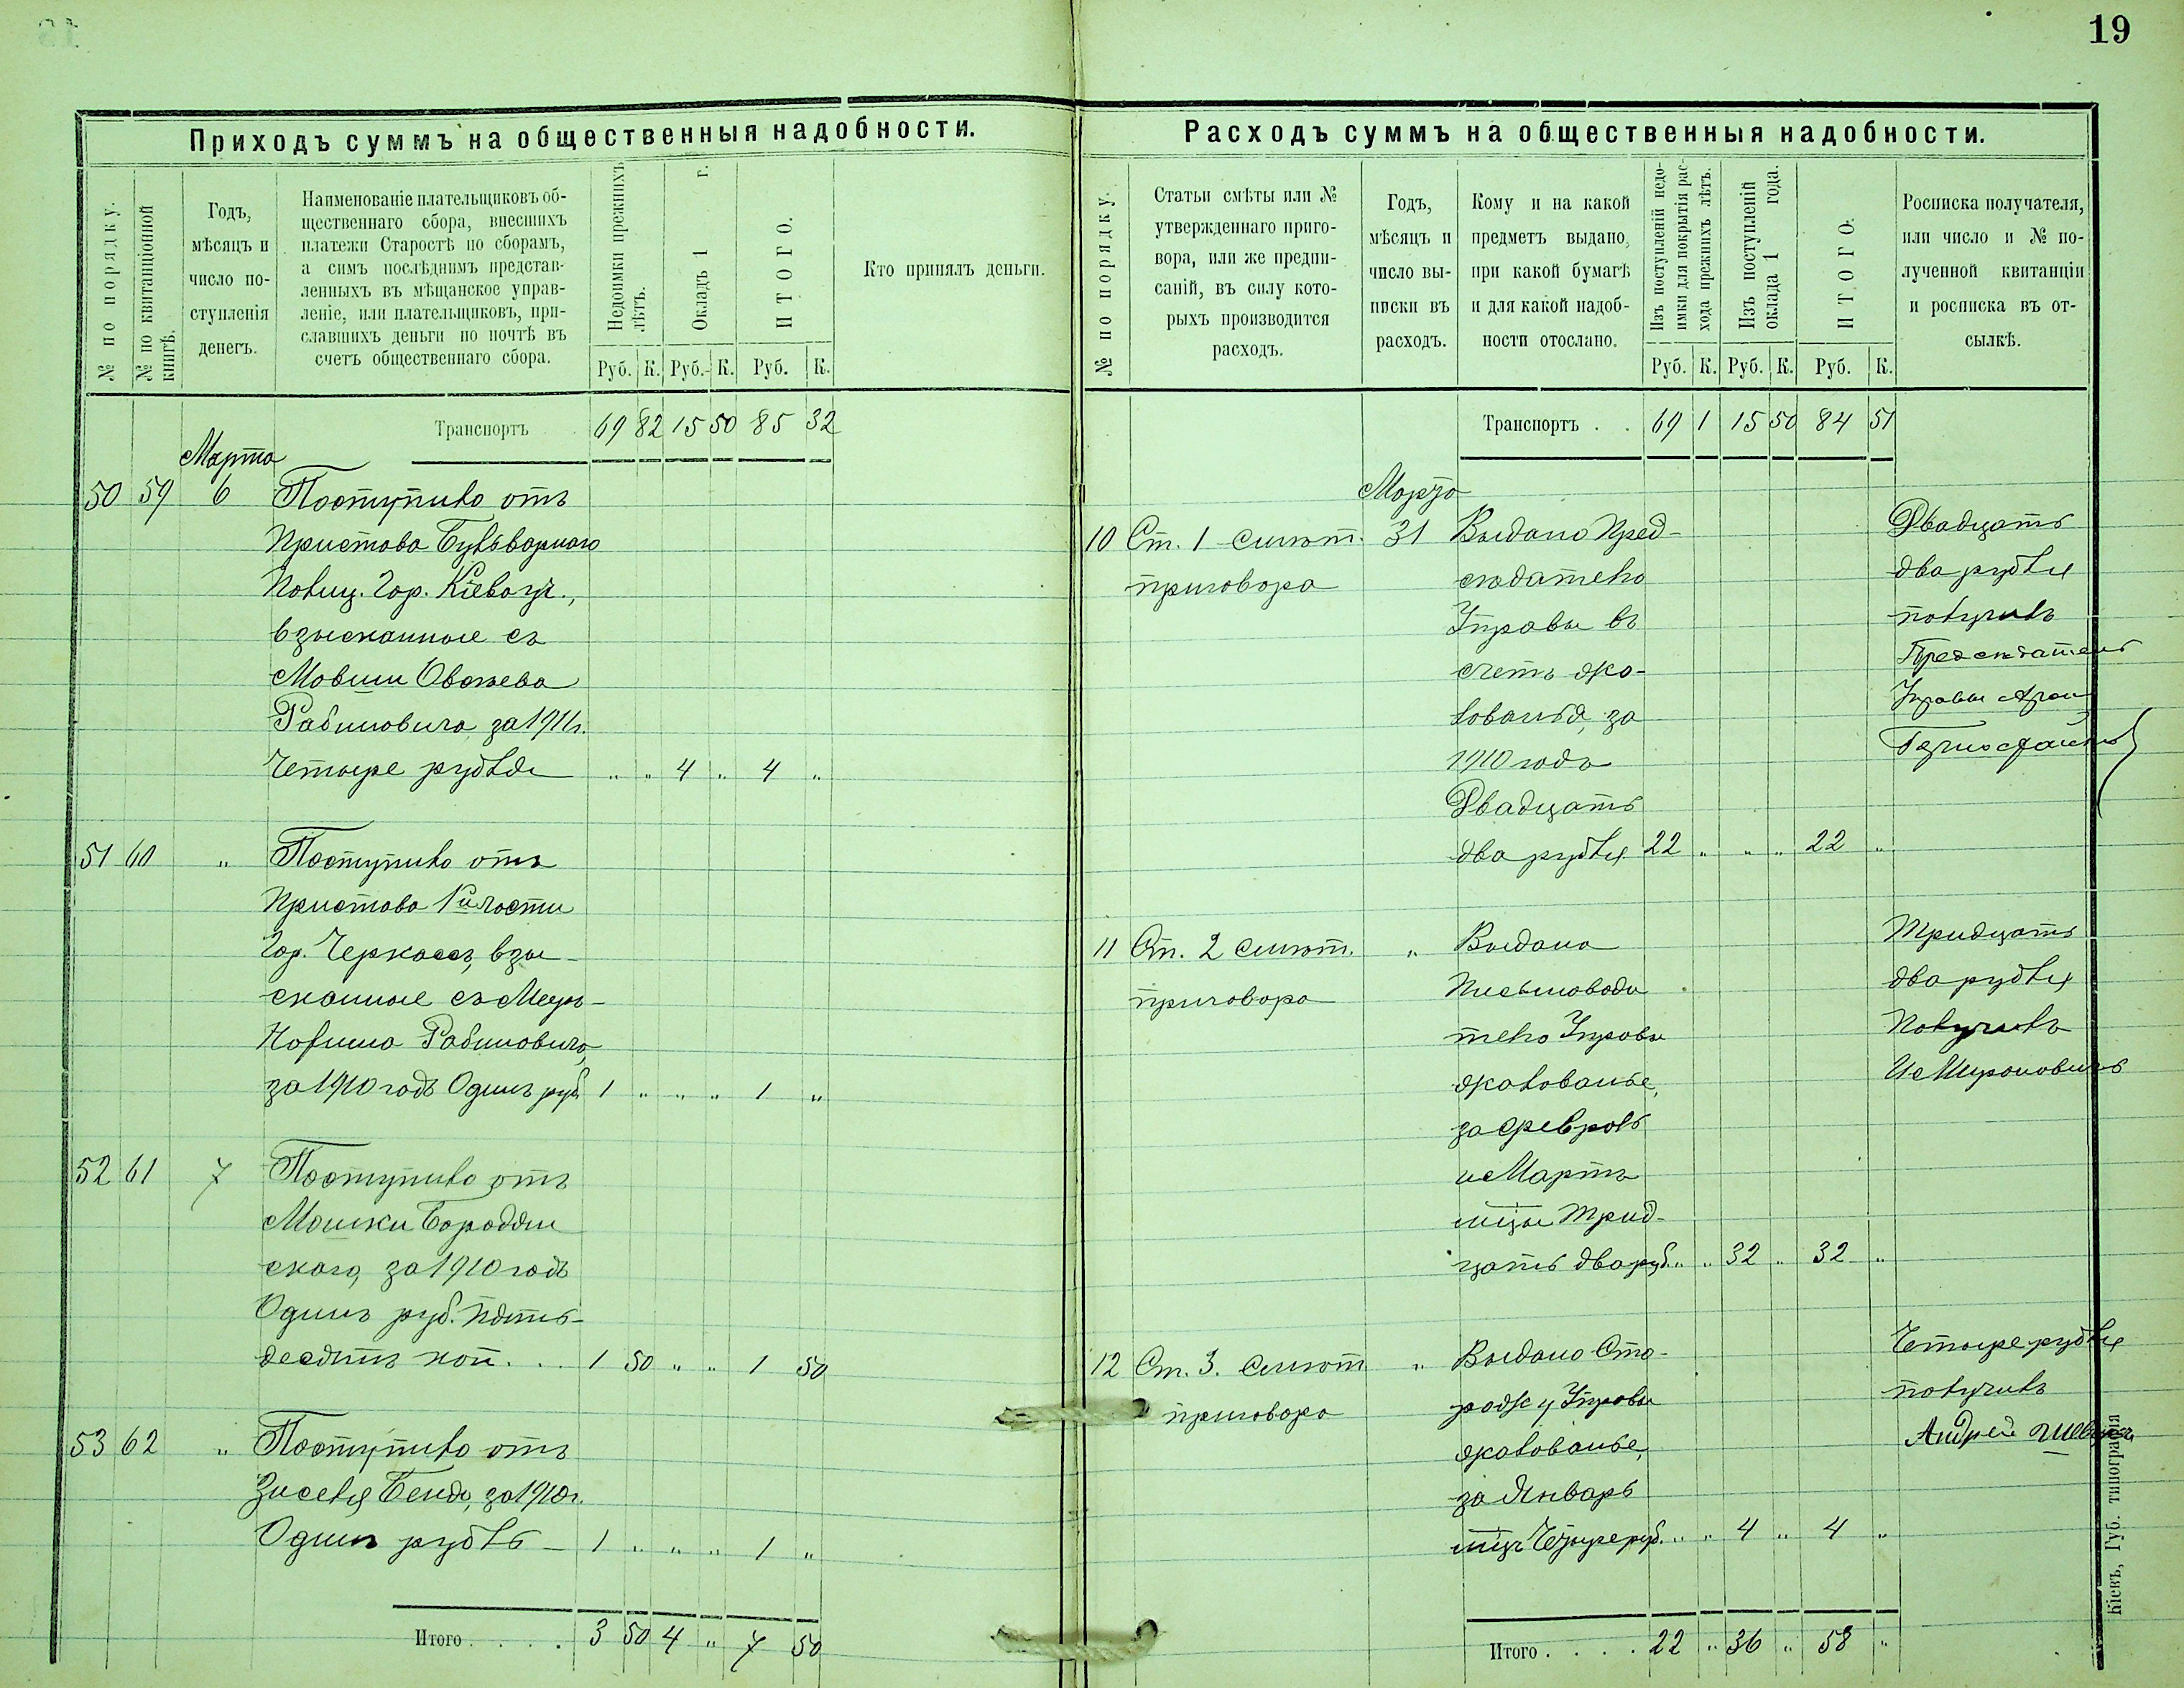 19
Приходъ суммъ на общественныя надобности.
№ по порядку.
№ по квитанціонной
книгѣ.
Годъ,
мѣсяцъ и
число по-
ступленія
денегъ.
Наименованіе плательщиковъ об-
щественнаго сбора, внесшихъ
платежи Старостѣ по сборамъ,
а симъ послѣднимъ представ-
ленныхъ въ мѣщанское управ-
леніе, или плательщиковъ, при-
славшихъ деньги по почтѣ въ
счетъ общественнаго сбора.
Недоимки прежнихъ
лѣтъ.
Окладъ 1 г.
ИТОГО.
Кто принялъ деньги.
Руб. К. Руб. К. Руб. К.
Транспортъ 69 82 15 50 85 32
Марта
50 59 6 Поступило отъ
Пристава Бульварнаго
Полиц. Гор. Кіева уч.,
взысканные съ
Мовши Овсѣева
Рабиновича за 1911 г.
Четыре рубля " " 4 " 4 "
51 60 " Поступило отъ
Пристава 1й части
Гор. Черкассъ, взы-
сканные съ Мееръ-
Рабиновича,
за 1910 годъ Одинъ руб. 1 " " " 1 "
52 61 7 Поступило отъ
Мошки Бородян
скаго, за 1910 годъ
Одинъ руб. пять-
десятъ коп. . . 1 50 " " 1 50
53 62 " Поступило отъ
Зиселя за 1910 г.
Одинъ рубль – 1 " " " 1 "
Итого . . . . 3 50 4 " 7 50
Расходъ суммъ на общественныя надобности.
№ по порядку.
Статьи смѣты или №
утвержденнаго приго-
вора, или же предпи-
саній, въ силу кото-
рыхъ производится
расходъ.
Годъ,
мѣсяцъ и
число вы-
писки въ
расходъ.
Кому и на какой
предметъ выдано,
при какой бумагѣ
и для какой надоб-
ности отослано.
Изъ поступленій недо-
имки для покрытія рас-
хода прежнихъ лѣтъ.
Изъ поступленій
оклада 1 года.
ИТОГО.
Росписка получателя,
или число и № по-
лученной квитанціи
и росписка въ от-
сылкѣ.
Руб. К. Руб. К. Руб. К.
Транспортъ . . 69 1 15 50 84 51
Марта
10 Ст. 1 смѣт. 31 Выдано Пред-
приговора сѣдателю
Управы въ
счетъ жа-
лованья, за
1910 годъ
Двадцать
два рубля 22 " " " 22 "
Двадцать
два рубля
получилъ
Предсѣдатель
Управы
11 Ст. 2 смѣт. " Выдано
приговора Письмоводи
телю Управы
жалованье,
за Февраль
и Мартъ
мцы Трид-
цать два руб. " " 32 " 32 "
Тридцать
два рубля
Получилъ
И Мироновичъ
12 Ст. 3. смѣт " Выдано Сто-
приговора рожу Управы
жалованье,
за Январь
мцъ Четыре руб. " " 4 " 4 "
Четыре рубля
получилъ
Андрей
Итого . . . . 22 " 36 " 58 "
Кіевъ, Губ. типографія